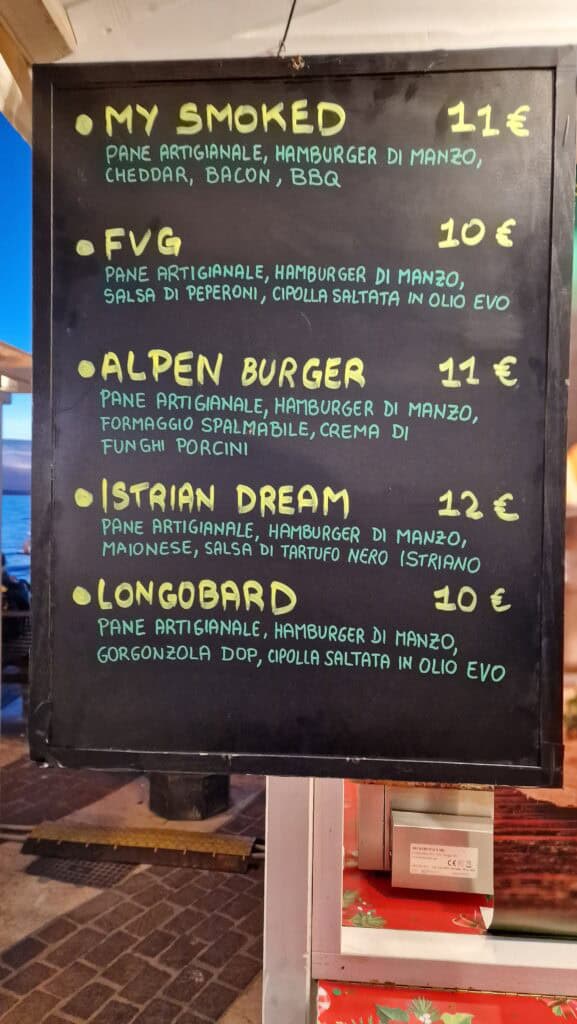 • MY SMOKED 11 €
PANE ARTIGIANALE, HAMBURGER DI MANZO,
CHEDDAR, BACON, BBQ
• FVG 10 €
PANE ARTIGIANALE, HAMBURGER DI MANZO,
SALSA DI PEPERONI, CIPOLLA SALTATA IN OLIO EVO
• ALPEN BURGER 11 €
PANE ARTIGIANALE, HAMBURGER DI MANZO,
FORMAGGIO SPALMABILE, CREMA DI
FUNGHI PORCINI
• ISTRIAN DREAM 12 €
PANE ARTIGIANALE, HAMBURGER DI MANZO,
MAIONESE, SALSA DI TARTUFO NERO ISTRIANO
• LONGOBARD 10 €
PANE ARTIGIANALE, HAMBURGER DI MANZO,
GORGONZOLA DOP, CIPOLLA SALTATA IN OLIO EVO
CE